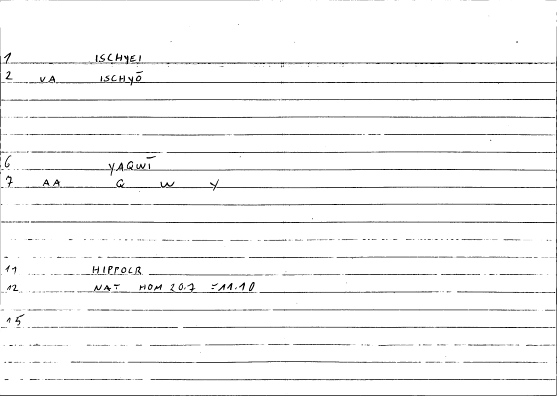 1 ISCHYEI
2 VA ISCHYŌ
6 YAQWĪ
7 AA Q W Y
11 HIPPOCR
12 NAT HOM 20.7 = 11.10
15